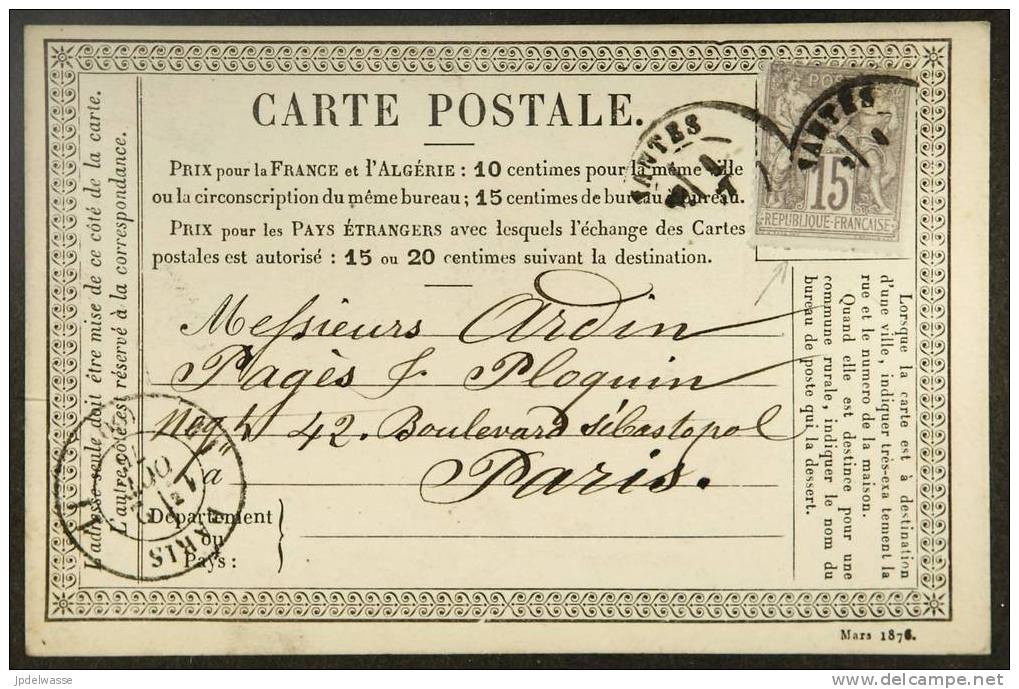 CARTE POSTALE.
PRIX pour la FRANCE et l'ALGÉRIE : 10 centimes pour la même ville
ou la circonscription du même bureau ; 15 centimes de bureau à bureau.
PRIX pour les PAYS ÉTRANGERS avec lesquels l'échange des Cartes
postales est autorisé : 15 ou 20 centimes suivant la destination.
NANTES
NANTES
POSTES
15
REPUBLIQUE-FRANÇAISE
Messieurs Ardin
Pagès & Ploquin
Negts 42. Boulevard Sébastopol
à Paris.
Département
ou
Pays :
PARIS
L'adresse seule doit être mise de ce côté de la carte.
L'autre côté est réservé à la correspondance.
Lorsque la carte est à destination
d'une ville, indiquer très-exa tement la
rue et le numero de la maison.
Quand elle est destinée pour une
commune rurale, indiquer le nom du
bureau de poste qui la dessert.
Mars 1876.
jpdelwasse
delcampe.net